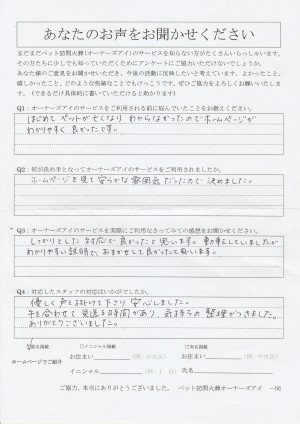 あなたのお声をお聞かせください
まだまだペット訪問火葬(オーナーズアイ)のサービスを知らない方がたくさんいらっしゃいます。
その方たちに少しでも知っていただくためにアンケートにご協力いただけないでしょうか。
あなた様のご意見をお聞かせいただき、今後の活動に反映したいと考えています。よかったこと、
嬉しかったこと、どのような些細なことでもけっこうです。ぜひご協力をよろしくお願いいたします。
(できるだけ具体的に書いていただけると助かります)
Q1:オーナーズアイのサービスをご利用される前に悩んでいたことをお教えください。
はじめてペットが亡くなり わからなかったのでホームページが
わかりやすく 良かったです。
Q2:何が決め手となってオーナーズアイのサービスを利用されましたか。
ホームページを見て安らかな雰囲気だったので 決めました。
Q3:オーナーズアイのサービスを実際にご利用なさってみての感想をお聞かせください。
しっかりとした 対応で良かったと思います。動転していましたが
わかりやすい説明で、おまかせして良かったと思います。
Q4:対応したスタッフの対応はいかがでしたか。
優しく声を掛けて下さり 安心しました。
手を合わせて 見送る時間があり、気持ちの 整理がつきました。
ありがとうございました。
匿名掲載 □イニシャル掲載 □実名掲載
ホームページでご紹介 お住まい お住まい
イニシャル 氏名
ご協力、本当にありがとうございました。 ペット訪問火葬オーナーズアイ